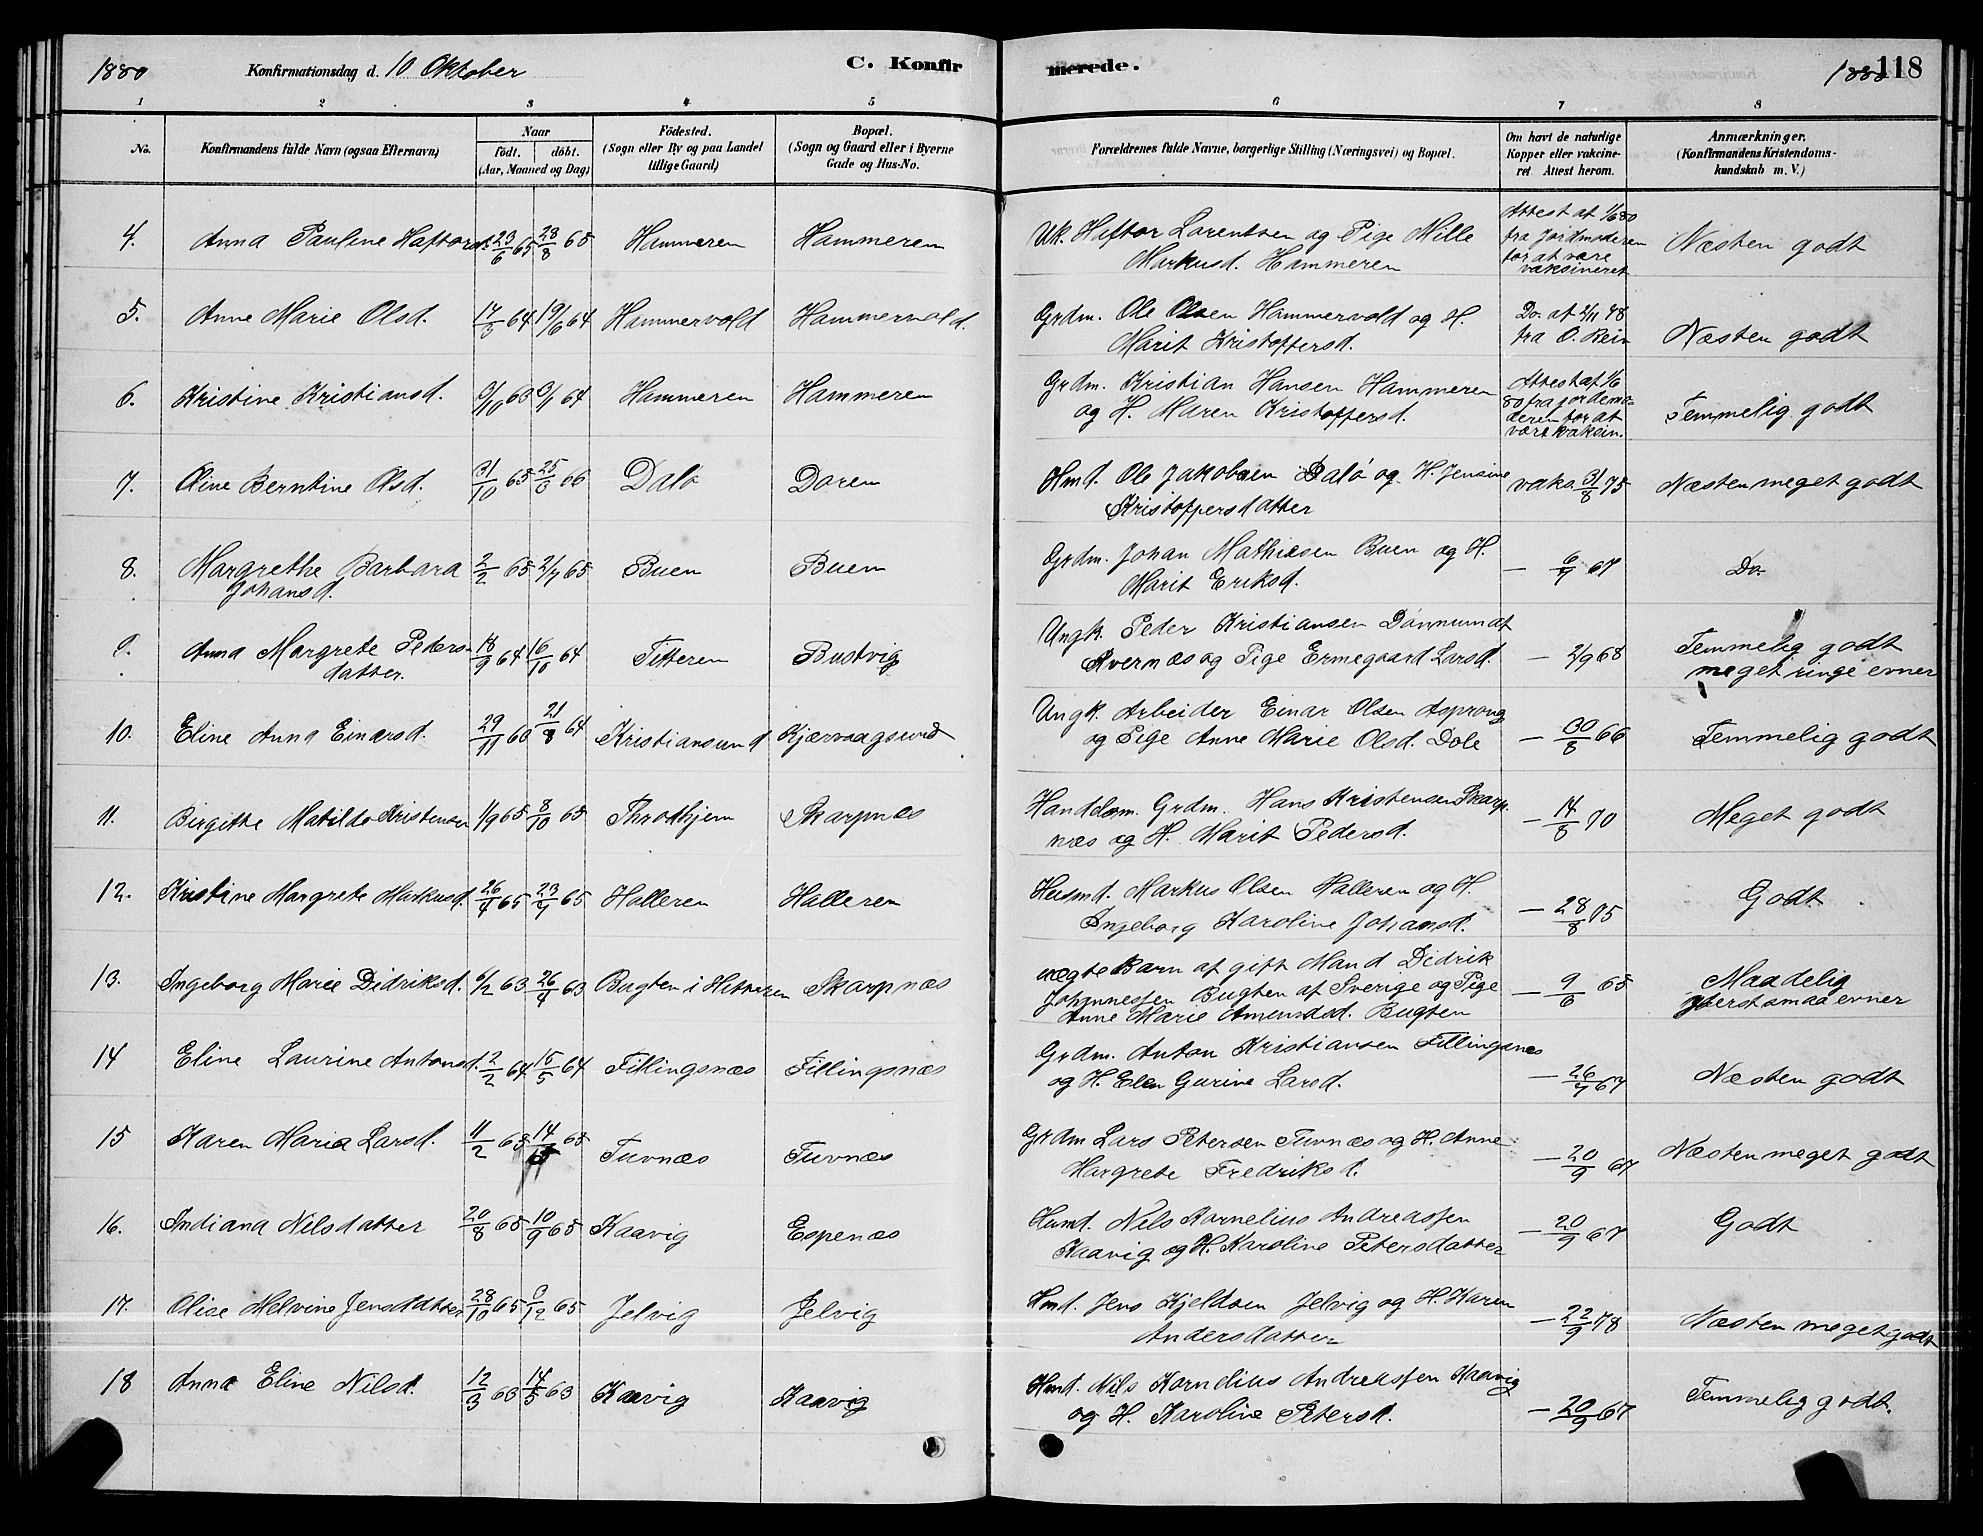 1880 Konfirmationsdag d. 10 Oktober C. Konfir merede. 1880 118
1 2 3 4 5 6 7 8
No. Konfirmandens fulde Navn (ogsaa Efternavn) Naar Fødested. Bopæl. Forældrenes fulde Navne, borgerlige Stilling (Næringsvei) og Bopæl. Om havt de naturlige Anmærkninger.
født. døbt. (Sogn eller By og paa Landet (Sogn og Gaard eller i Byerne Kopper eller vakcine- (Konfirmandens Kristendoms-
(Aar, Maaned og Dag) tillige Gaard) Gade og Hus-No. ret Attest herom. kundskab m. V.)
4. Anna Pauline Haftord. 23/6 65 28/8 65 Hammeren Hammeren Uk. Haftor Lorentsen og Pige Mille Attest af 1/6 80
Markusd. Hammeren fra Jordmoderen Næsten godt
for at være
vaksineret
5. Anne Marie Olsd. 17/3 64 19/6 64 Hammervold Hammervold. Grdm. Ole Olsen Hammervold og H. Do. af 2/11 78
Marit Kristoffersd. fra O. Rein Næsten godt
6. Kristine Kristiansd. 3/10 63 3/1 64 Hammeren Hammeren Grdm. Kristian Hansen Hammeren Attest af 1/6
og H. Maren Kristoffersd. 80 fra jordemo- Temmelig godt
deren for at
være vaksin.
7. Oline Berntine Olsd. 31/10 65 25/3 66 Dalø Doren Hmd. Ole Jakobsen Dalø og H. Jensine vaks. 31/8 75 Næsten meget godt
Kristoffersdatter
8. Margrethe Barbara 2/2 65 2/7 65 Buen Buen Grdm. Johan Mathiesen Buen og H. — 6/7 67 Do.
Johansd. Marit Eriksd.
9. Anna Margrete Peders- 18/9 64 16/10 64 Titteren Bustvig Ungk. Peder Kristiansen
datter. Kvernæs og Pige Ermegaard Larsd. — 2/9 68 Temmelig godt
meget ringe evner
10. Eline Anna Einarsd. 29/11 63 21/8 64 Kristiansund Kjærvaagsund Ungk. Arbeider Einar Olsen Asprong
og Pige Anne Marie Olsd. Dole — 30/8 66 Temmelig godt
11. Birgitte Matilde Kristensen 1/9 65 8/10 65 Throthjem Skarpnæs Handelsm. Grdm. Hans Kristensen Skarp-
næs og H. Marit Pedersd. — 14/8 70 Meget godt
12. Kristine Margrete Markusd. 26/4 65 23/7 65 Halleren Halleren Husmd. Markus Olsen Halleren og H.
Ingeborg Karoline Johansd. — 28/8 75 Godt
13. Ingeborg Marie Didriksd. 6/2 63 26/4 63 Bugten i Hitteren Skarpnæs uægte Barn af gift Mand Didrik
Johannessen Bugten af Sverige og Pige — 9/6 65 Maadelig
Anne Marie Amundsd. Bugten yderst smaa evner
14 Eline Laurine Antonsd. 2/2 64 15/5 64 Fillingsnæs Fillingsnæs Grdm. Anton Kristiansen Fillingsnæs
og H. Elen Gurine Larsd. — 26/7 67 Næsten godt
15 Karen Maria Larsd. 11/2 65 14/5 65 Tuvnæs Tuvnæs Grdm Lars Petersen Tuvnæs og H. Anne
Margrete Fredriksd. — 20/9 67 Næsten meget godt
16. Indiana Nilsdatter 20/8 65 10/9 65 Kaavig Espenæs Husmd. Nils Kornelius Andreassen
Kaavig og H. Karoline Petersdatter — 20/9 67 Godt
17. Olise Melvine Jensdatter 28/10 65 3/12 65 Jelvig Jelvig Hmd. Jens Kjeldsen Jelvig og H. Karen
Andersdatter — 22/9 78 Næsten meget godt
18 Anna Eline Nilsd. 12/3 63 14/5 63 Kaavig Kaavig Hmd. Nils Kornelius Andreassen Kaavig
og H. Karoline Petersd. — 20/9 67 Temmelig godt.